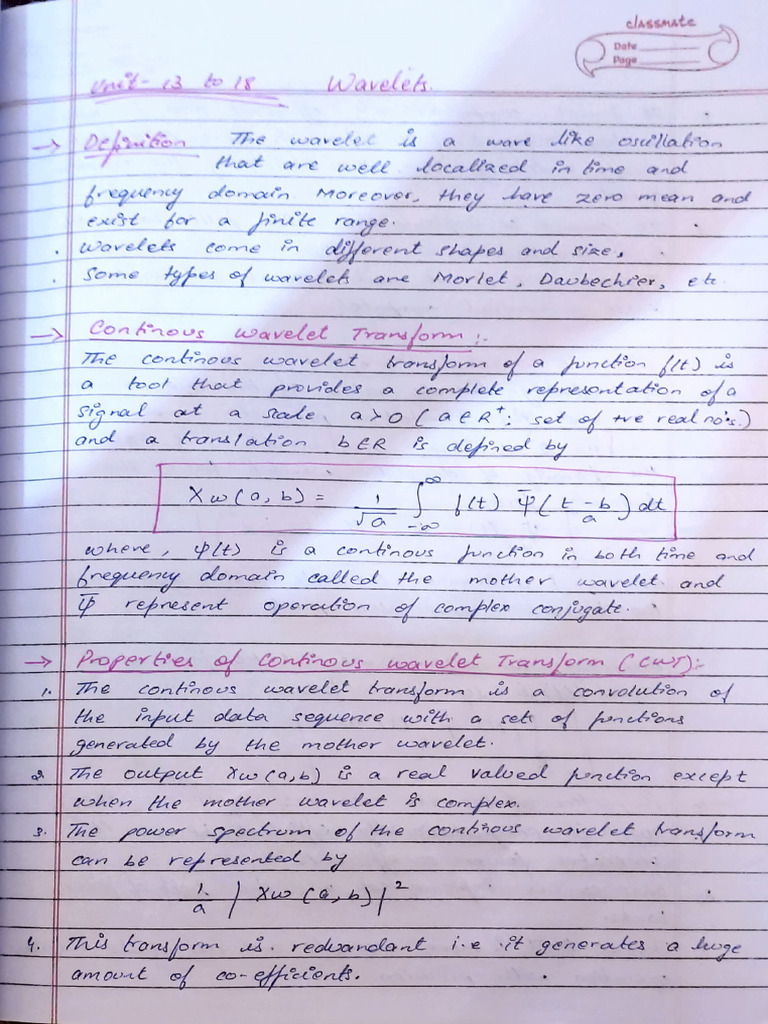 classmate
Date
Page
Unit - 13 to 18 Wavelets.
→ Definition The wavelet is a wave like oscillation
that are well localized in time and
frequency domain Moreover, they have zero mean and
exist for a finite range.
. Wavelets come in different shapes and size,
. Some types of wavelets are Morlet, Daubechier, etc
→ Continous wavelet Transform :-
The continous wavelet transform of a function f(t) is
a tool that provides a complete representation of a
signal at a scale a>0 ( a ∈ R⁺ : set of +ve real no's.)
and a translation b∈R is defined by
Xw(a,b) = 1/√a ∫_{-∞}^{∞} f(t) ψ̄((t-b)/a) dt
where, ψ(t) is a continous function in both time and
frequency domain called the mother wavelet and
ψ̄ represent operation of complex conjugate.
→ Properties of continous wavelet Transform (CWT):-
1. The continous wavelet transform is a convolution of
the input data sequence with a sets of functions
generated by the mother wavelet.
2. The output Xw(a,b) is a real valued function except
when the mother wavelet is complex.
3. The power spectrum of the continous wavelet transform
can be represented by
1/a |Xw(a,b)|²
4. This transform is redundant i.e it generates a huge
amount of co-efficients.